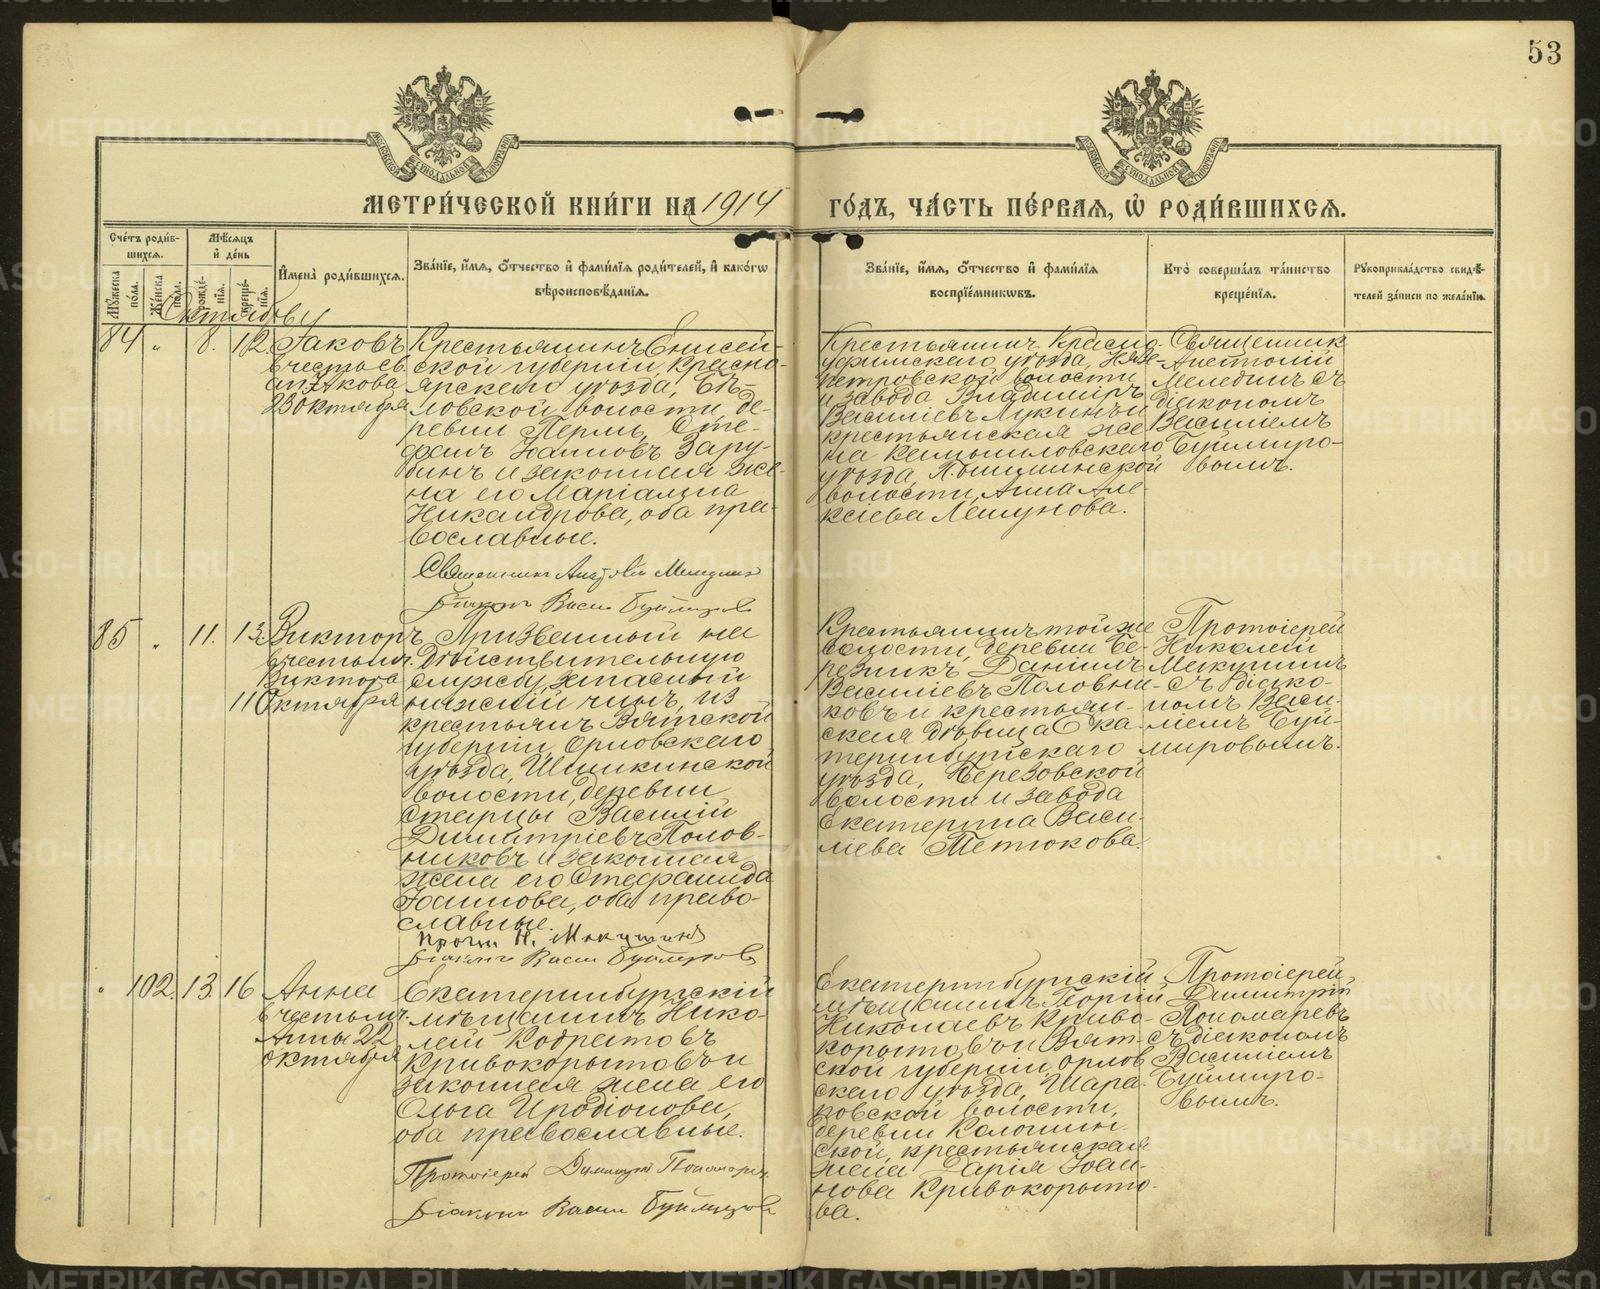 53
МЕТРИ́ЧЕСКОЙ КНИ́ГИ НА 1914 ГО́ДЪ, ЧА́СТЬ ПЕ́РВАЯ, Ѡ҆ РОДИ́ВШИХСЯ.
Сче́тъ роди́в-
шихся.
Му́жеска по́ла.
Же́нска по́ла.
Мѣ́сяцъ
и҆ де́нь
рожде́-
нїя.
креще́-
нїя.
И҆мена̀ роди́вшихся.
Зва́нїе, и҆́мя, ѻ҆́тчество и҆ фами́лїя роди́телей, и҆ како́гѡ
вѣроисповѣ́данїя.
Зва́нїе, и҆́мя, ѻ҆́тчество и҆ фами́лїя
воспрїе́мникѡвъ.
Кто̀ соверша́лъ та́инство
креще́нїя.
Рꙋкоприкла́дство свидѣ́-
телей за́писи по жела́нїю.
Октябрь
84 „ 8. 12.
Іаковъ
въ честь св.
ап. Іакова
23 октября
Крестьянинъ Енисей-
ской губерніи, Красно-
ярскаго уѣзда, Бѣ-
ловской волости, де-
ревни Перлы, Сте-
фанъ Іоанновъ Зару-
бинъ и законная же-
на его Маріамна
Никандрова, оба пра-
вославные.
Священникъ Анатолій Мелединъ
Діаконъ Васил Буймировъ
Крестьянинъ Красно-
уфимскаго уѣзда, Нязе-
петровской волости
и завода Владиміръ
Василіевъ Лукинъ и
крестьянская же-
на Камышловскаго
уѣзда,
волости, Анна Але-
ксіева Лешунова.
Священникъ
Анатолій
Мелединъ съ
діакономъ
Василіемъ
Буймиро-
вымъ.
85 „ 11. 13.
Викторъ
въ честь мч.
Виктора
11 Октября
Призванный на
дѣйствительную
службу запасный
нижній чинъ, из
крестьянъ Вятской
губерніи, Орловскаго
уѣзда, Шишкинской
волости, деревни
Старцы Василій
Димитріевъ Полов-
никовъ и законная
жена его Стефанида
Іоаннова, оба право-
славные.
Прот. Н. Мякушинъ
Діаконъ Васил Буймировъ
Крестьянинъ той же
волости, деревни Бе-
резникъ Даніилъ
Василіевъ Половни-
ковъ и крестьян-
ская дѣвица Ека-
теринбургскаго
уѣзда, Березовской
волости и завода
Екатерина Васи-
ліева Тетюкова.
Протоіерей
Николай
Мякушинъ
съ діако-
номъ Васи-
ліемъ Буй-
мировымъ.
„ 102. 13. 16
Анна
въ честь мч.
Анны 22
октября
Екатеринбургскій
мѣщанинъ Нико-
лай Кодратовъ
Кривокорытовъ и
законная жена его
Ольга Иродіонова,
оба православные.
Протоіерей Димитрій Пономаревъ
Діаконъ Васил Буймировъ
Екатеринбургскій
мѣщанинъ Георгій
Николаевъ Криво-
корытовъ и Вят-
ской губерніи, Орлов-
скаго уѣзда, Шара-
новской волости,
деревни Колошин-
ской, крестьянская
жена Дарія Іоан-
нова Кривокорыто-
ва.
Протоіерей
Димитрій
Пономаревъ
съ діакономъ
Василіемъ
Буймиро-
вымъ.
METRIKI.GASO-URAL.RU